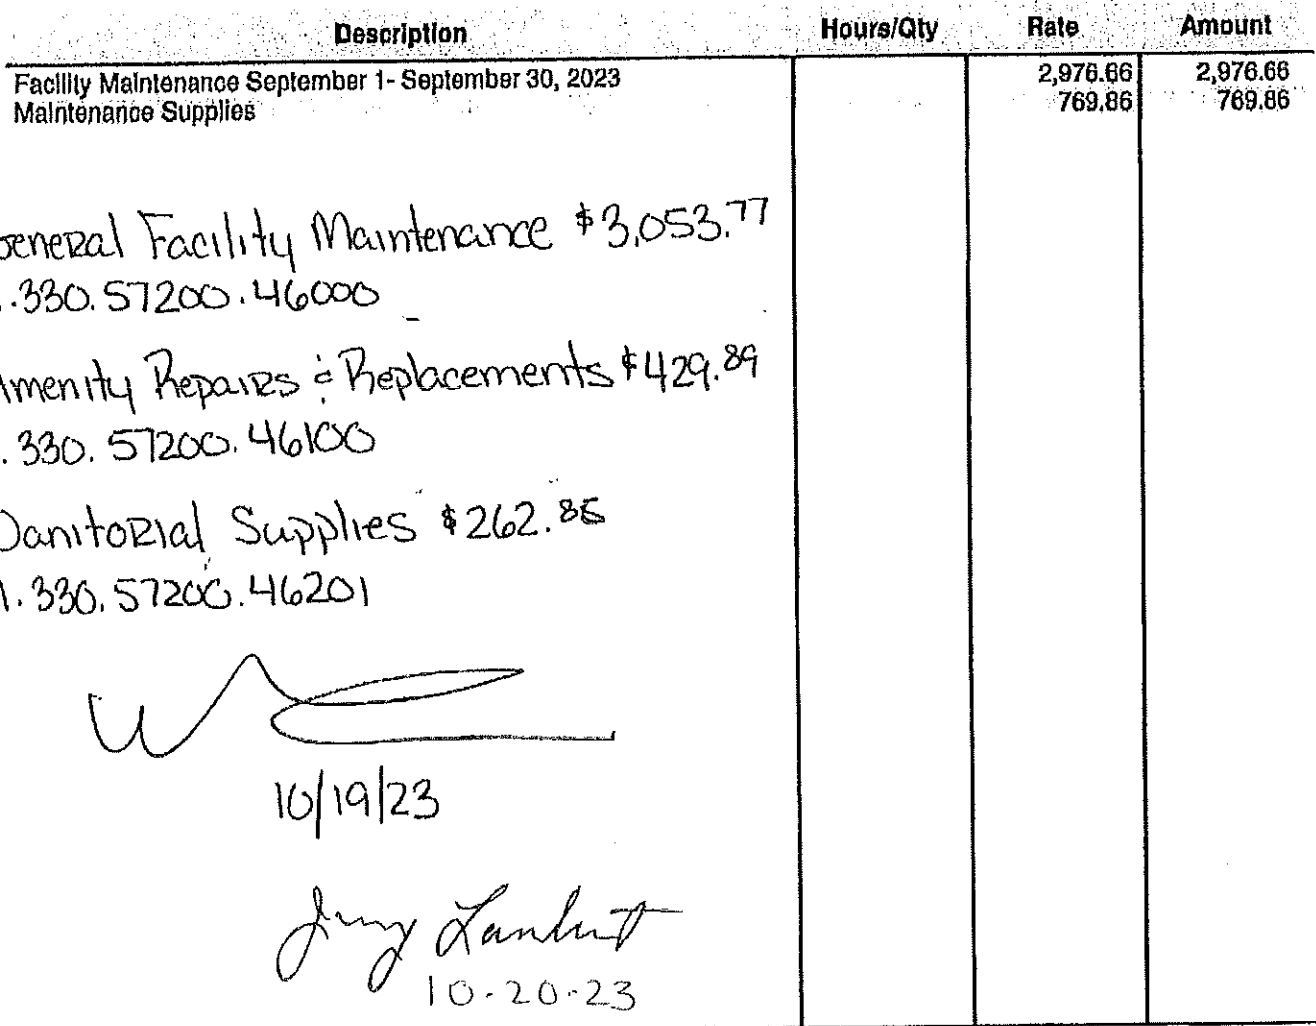 Description Hours/Qty Rate Amount
Facility Maintenance September 1- September 30, 2023 2,976.66 2,976.66
Maintenance Supplies 769.86 769.86
General Facility Maintenance $3,053.77
.330.57200.46000
Amenity Repairs & Replacements $429.89
.330.57200.46100
Janitorial Supplies $262.86
1.330.57200.46201
10/19/23
Jerry Lambert
10-20-23